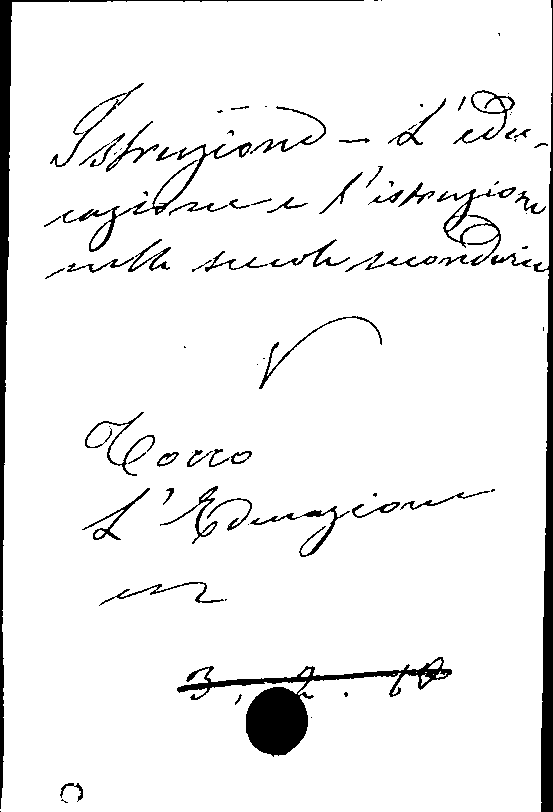 Istruzione - L'edu-
cazione e l'istruzione
nelle scuole secondarie
V
Tocco
L'Educazione
ecc
3, 2. 10